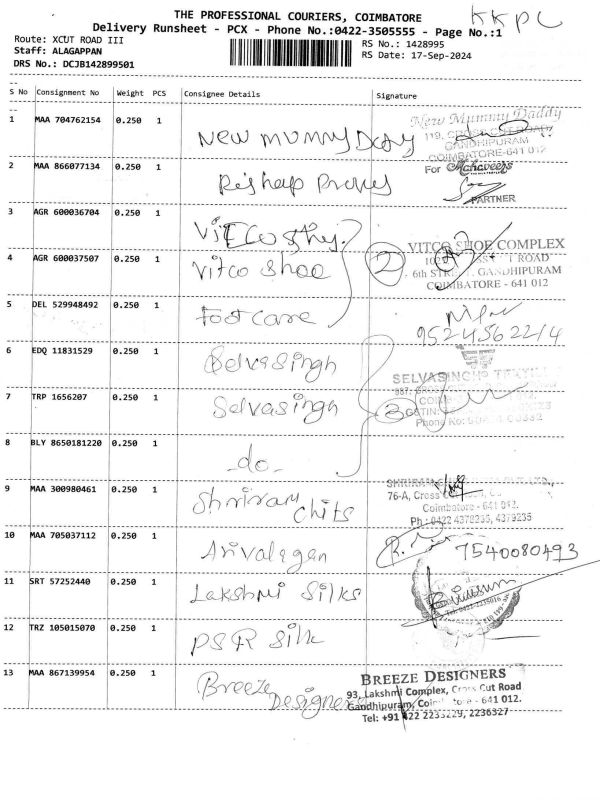 THE PROFESSIONAL COURIERS, COIMBATORE
KKPC
Delivery Runsheet - PCX - Phone No.:0422-3505555 - Page No.:1
Route: XCUT ROAD III
RS No.: 1428995
Staff: ALAGAPPAN
RS Date: 17-Sep-2024
DRS No.: DCJB142899501
S No Consignment No Weight PCS Consignee Details Signature
1 MAA 704762154 0.250 1 New mummy Dady
New Mummy Daddy
119, CROSS CUT ROAD
GANDHIPURAM
COIMBATORE-641 012
2 MAA 866077134 0.250 1
For Mahaveers
PARTNER
3 AGR 600036704 0.250 1
4 AGR 600037507 0.250 1 Vitco Shoe 2
VITCO SHOE COMPLEX
ROAD
6th STREET, GANDHIPURAM
COIMBATORE - 641 012
5 DEL 529948492 0.250 1 Foot care
9524562214
6 EDQ 11831529 0.250 1 Selvasingh
SELVASINGH
7 TRP 1656207 0.250 1 Selvasingh 3
GSTIN:
Phone No:
8 BLY 8650181220 0.250 1 -do-
9 MAA 300980461 0.250 1 Shriram Chits
SHRIRAM
76-A, Cross
Coimbatore - 641 012.
Ph : 0422 4378235, 4379235
10 MAA 705037112 0.250 1 Arivalagan
7540080493
11 SRT 57252440 0.250 1 Lakshmi Silks
12 TRZ 105015070 0.250 1 PSR Silk
13 MAA 867139954 0.250 1 Breeze Designers
BREEZE DESIGNERS
93, Lakshmi Complex, Cross Cut Road
Gandhipuram, Coimbatore - 641 012.
Tel: +91 422 2233229, 2236327